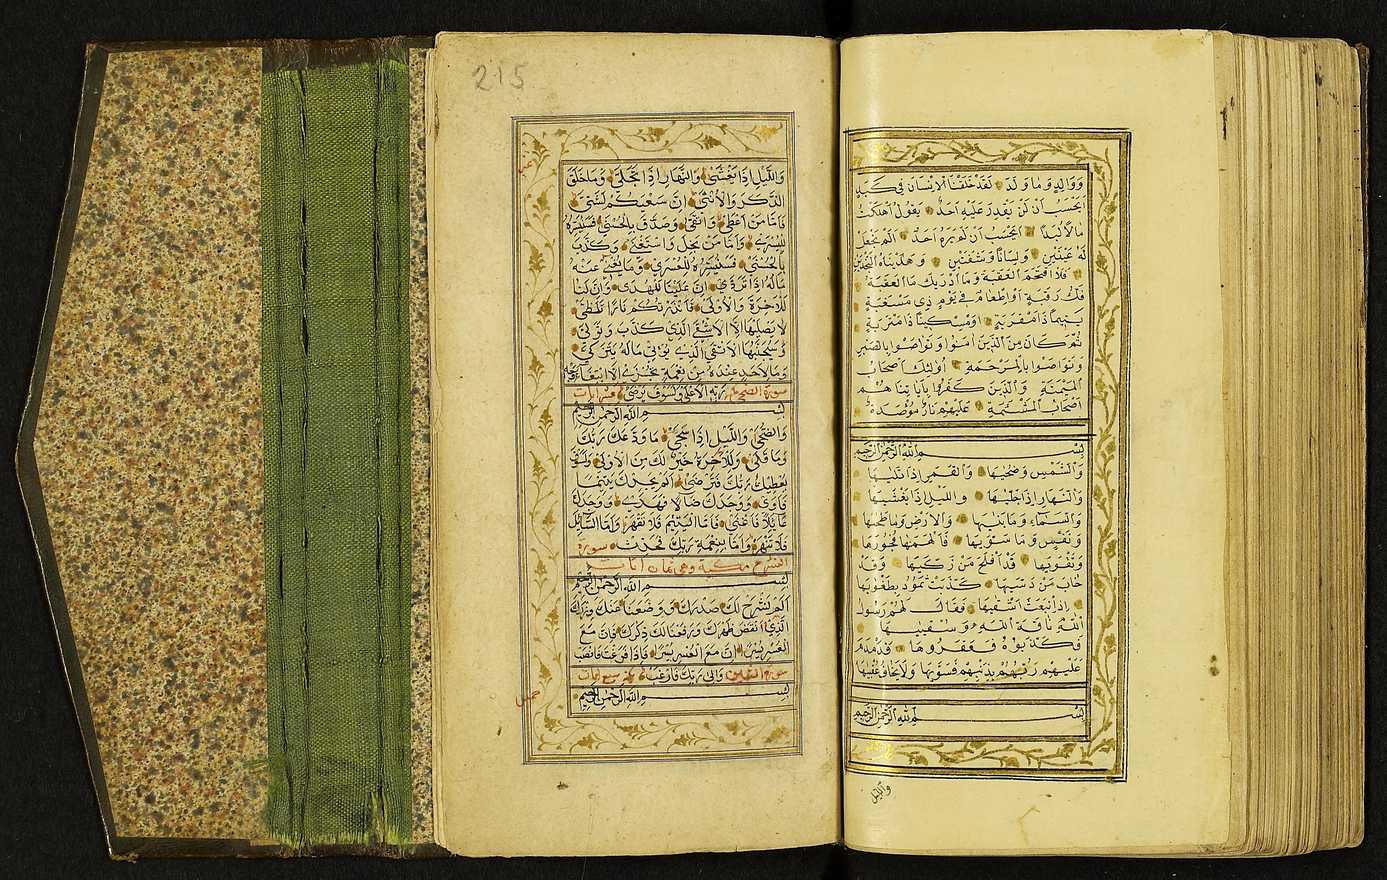 وَوَالِدٍ وَمَا وَلَدَ لَقَدْ خَلَقْنَا الْإِنْسَانَ فِي كَبَدٍ
أَيَحْسَبُ أَنْ لَنْ يَقْدِرَ عَلَيْهِ أَحَدٌ يَقُولُ أَهْلَكْتُ
مَالًا لُبَدًا أَيَحْسَبُ أَنْ لَمْ يَرَهُ أَحَدٌ أَلَمْ نَجْعَلْ
لَهُ عَيْنَيْنِ وَلِسَانًا وَشَفَتَيْنِ وَهَدَيْنَاهُ النَّجْدَيْنِ
فَلَا اقْتَحَمَ الْعَقَبَةَ وَمَا أَدْرَيكَ مَا الْعَقَبَةُ
فَكُّ رَقَبَةٍ أَوْ إِطْعَامٌ فِي يَوْمٍ ذِي مَسْغَبَةٍ
يَتِيمًا ذَا مَقْرَبَةٍ أَوْ مِسْكِينًا ذَا مَتْرَبَةٍ
ثُمَّ كَانَ مِنَ الَّذِينَ آمَنُوا وَتَوَاصَوْا بِالصَّبْرِ
وَتَوَاصَوْا بِالْمَرْحَمَةِ أُولَئِكَ أَصْحَابُ
الْمَيْمَنَةِ وَالَّذِينَ كَفَرُوا بِآيَاتِنَا هُمْ
أَصْحَابُ الْمَشْئَمَةِ عَلَيْهِمْ نَارٌ مُؤْصَدَةٌ
بِسْمِ اللَّهِ الرَّحْمَنِ الرَّحِيمِ
وَالشَّمْسِ وَضُحَيهَا وَالْقَمَرِ إِذَا تَلَيهَا
وَالنَّهَارِ إِذَا جَلَّيهَا وَاللَّيْلِ إِذَا يَغْشَيهَا
وَالسَّمَاءِ وَمَا بَنَيهَا وَالْأَرْضِ وَمَا طَحَيهَا
وَنَفْسٍ وَمَا سَوَّيهَا فَأَلْهَمَهَا فُجُورَهَا
وَتَقْوَيهَا قَدْ أَفْلَحَ مَنْ زَكَّيهَا وَقَدْ
خَابَ مَنْ دَسَّيهَا كَذَّبَتْ ثَمُودُ بِطَغْوَيهَا
إِذِ انْبَعَثَ أَشْقَيهَا فَقَالَ لَهُمْ رَسُولُ
اللَّهِ نَاقَةَ اللَّهِ وَسُقْيَيهَا
فَكَذَّبُوهُ فَعَقَرُوهَا فَدَمْدَمَ
عَلَيْهِمْ رَبُّهُمْ بِذَنْبِهِمْ فَسَوَّيهَا وَلَا يَخَافُ عُقْبَيهَا
بِسْمِ اللَّهِ الرَّحْمَنِ الرَّحِيمِ
وَاللَّيْلِ
215
وَاللَّيْلِ إِذَا يَغْشَى وَالنَّهَارِ إِذَا تَجَلَّى وَمَا خَلَقَ
الذَّكَرَ وَالْأُنْثَى إِنَّ سَعْيَكُمْ لَشَتَّى
فَأَمَّا مَنْ أَعْطَى وَاتَّقَى وَصَدَّقَ بِالْحُسْنَى فَسَنُيَسِّرُهُ
لِلْيُسْرَى وَأَمَّا مَنْ بَخِلَ وَاسْتَغْنَى وَكَذَّبَ
بِالْحُسْنَى فَسَنُيَسِّرُهُ لِلْعُسْرَى وَمَا يُغْنِي عَنْهُ
مَالُهُ إِذَا تَرَدَّى إِنَّ عَلَيْنَا لَلْهُدَى وَإِنَّ لَنَا
لَلْآخِرَةَ وَالْأُولَى فَأَنْذَرْتُكُمْ نَارًا تَلَظَّى
لَا يَصْلَيهَا إِلَّا الْأَشْقَى الَّذِي كَذَّبَ وَتَوَلَّى
وَسَيُجَنَّبُهَا الْأَتْقَى الَّذِي يُؤْتِي مَالَهُ يَتَزَكَّى
وَمَا لِأَحَدٍ عِنْدَهُ مِنْ نِعْمَةٍ تُجْزَى إِلَّا ابْتِغَاءَ وَجْهِ
سورة الضحى رَبِّهِ الْأَعْلَى وَلَسَوْفَ يَرْضَى آيات
بِسْمِ اللَّهِ الرَّحْمَنِ الرَّحِيمِ
وَالضُّحَى وَاللَّيْلِ إِذَا سَجَى مَا وَدَّعَكَ رَبُّكَ
وَمَا قَلَى وَلَلْآخِرَةُ خَيْرٌ لَكَ مِنَ الْأُولَى وَلَسَوْفَ
يُعْطِيكَ رَبُّكَ فَتَرْضَى أَلَمْ يَجِدْكَ يَتِيمًا
فَآوَى وَوَجَدَكَ ضَالًّا فَهَدَى وَوَجَدَكَ
عَائِلًا فَأَغْنَى فَأَمَّا الْيَتِيمَ فَلَا تَقْهَرْ وَأَمَّا السَّائِلَ
فَلَا تَنْهَرْ وَأَمَّا بِنِعْمَةِ رَبِّكَ فَحَدِّثْ سورة
انشرح مكية وهي ثمان آيات
بِسْمِ اللَّهِ الرَّحْمَنِ الرَّحِيمِ
أَلَمْ نَشْرَحْ لَكَ صَدْرَكَ وَوَضَعْنَا عَنْكَ وِزْرَكَ
الَّذِي أَنْقَضَ ظَهْرَكَ وَرَفَعْنَا لَكَ ذِكْرَكَ فَإِنَّ مَعَ
الْعُسْرِ يُسْرًا إِنَّ مَعَ الْعُسْرِ يُسْرًا فَإِذَا فَرَغْتَ فَانْصَبْ
سورة التين وَإِلَى رَبِّكَ فَارْغَبْ آيات
بِسْمِ اللَّهِ الرَّحْمَنِ الرَّحِيمِ